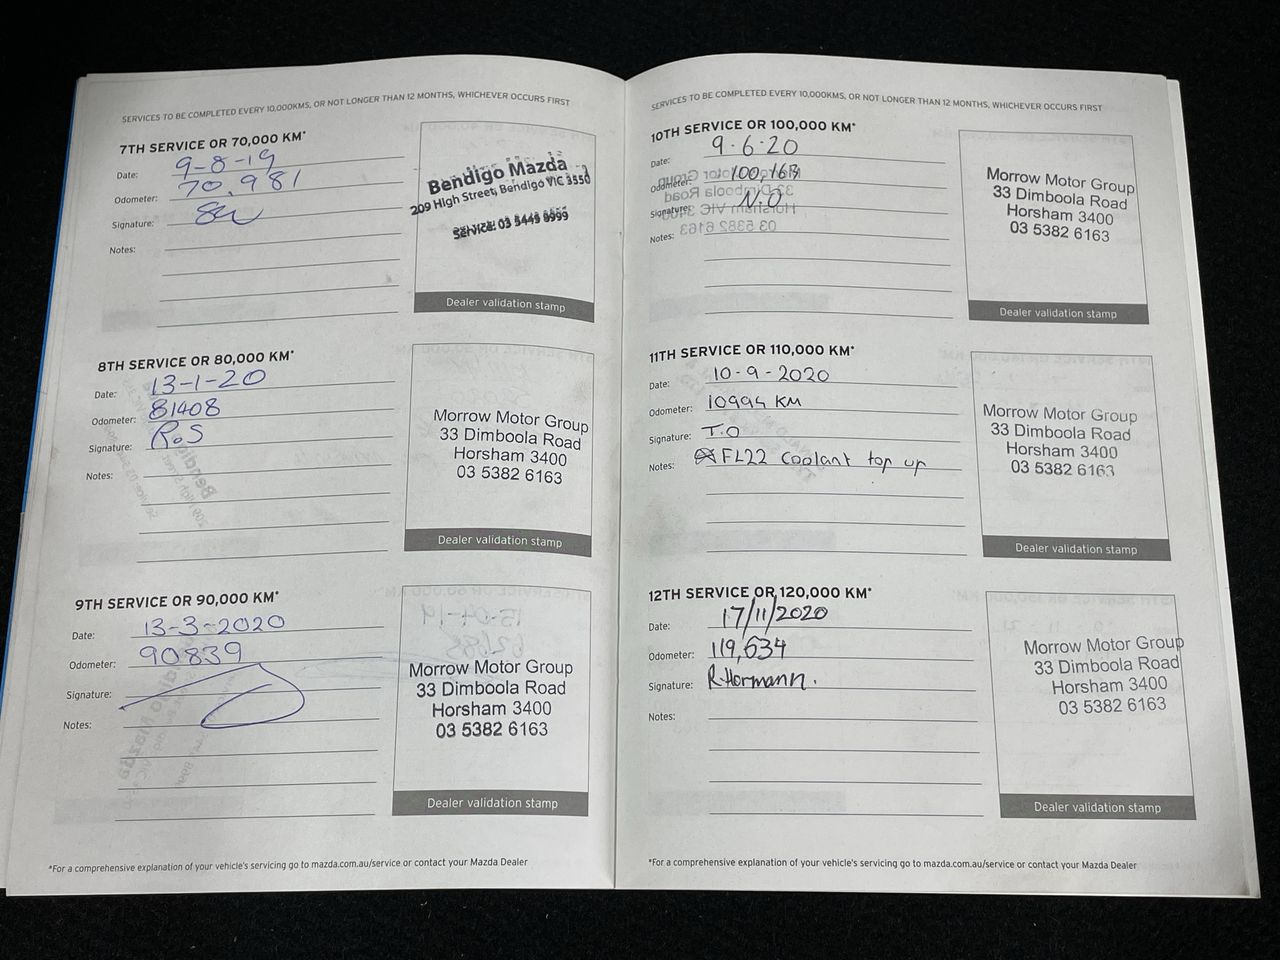 SERVICES TO BE COMPLETED EVERY 10,000KMS, OR NOT LONGER THAN 12 MONTHS, WHICHEVER OCCURS FIRST
7TH SERVICE OR 70,000 KM*
Date: 9-8-19
Odometer: 70,981
Signature:
Notes:
Bendigo Mazda
209 High Street, Bendigo VIC 3550
Service: 03 5445 9999
Dealer validation stamp
8TH SERVICE OR 80,000 KM*
Date: 13-1-20
Odometer: 81408
Signature: RoS
Notes:
Morrow Motor Group
33 Dimboola Road
Horsham 3400
03 5382 6163
Dealer validation stamp
9TH SERVICE OR 90,000 KM*
Date: 13-3-2020
Odometer: 90839
Signature:
Notes:
Morrow Motor Group
33 Dimboola Road
Horsham 3400
03 5382 6163
Dealer validation stamp
*For a comprehensive explanation of your vehicle's servicing go to mazda.com.au/service or contact your Mazda Dealer
SERVICES TO BE COMPLETED EVERY 10,000KMS, OR NOT LONGER THAN 12 MONTHS, WHICHEVER OCCURS FIRST
10TH SERVICE OR 100,000 KM*
Date: 9.6.20
Odometer:
Signature: N.O
Notes:
Morrow Motor Group
33 Dimboola Road
Horsham 3400
03 5382 6163
Dealer validation stamp
11TH SERVICE OR 110,000 KM*
Date: 10-9-2020
Odometer: 10994 KM
Signature: T.O
Notes: FL22 coolant top up
Morrow Motor Group
33 Dimboola Road
Horsham 3400
03 5382 6163
Dealer validation stamp
12TH SERVICE OR 120,000 KM*
Date: 17/11/2020
Odometer: 119,634
Signature: R.Hormann.
Notes:
Morrow Motor Group
33 Dimboola Road
Horsham 3400
03 5382 6163
Dealer validation stamp
*For a comprehensive explanation of your vehicle's servicing go to mazda.com.au/service or contact your Mazda Dealer